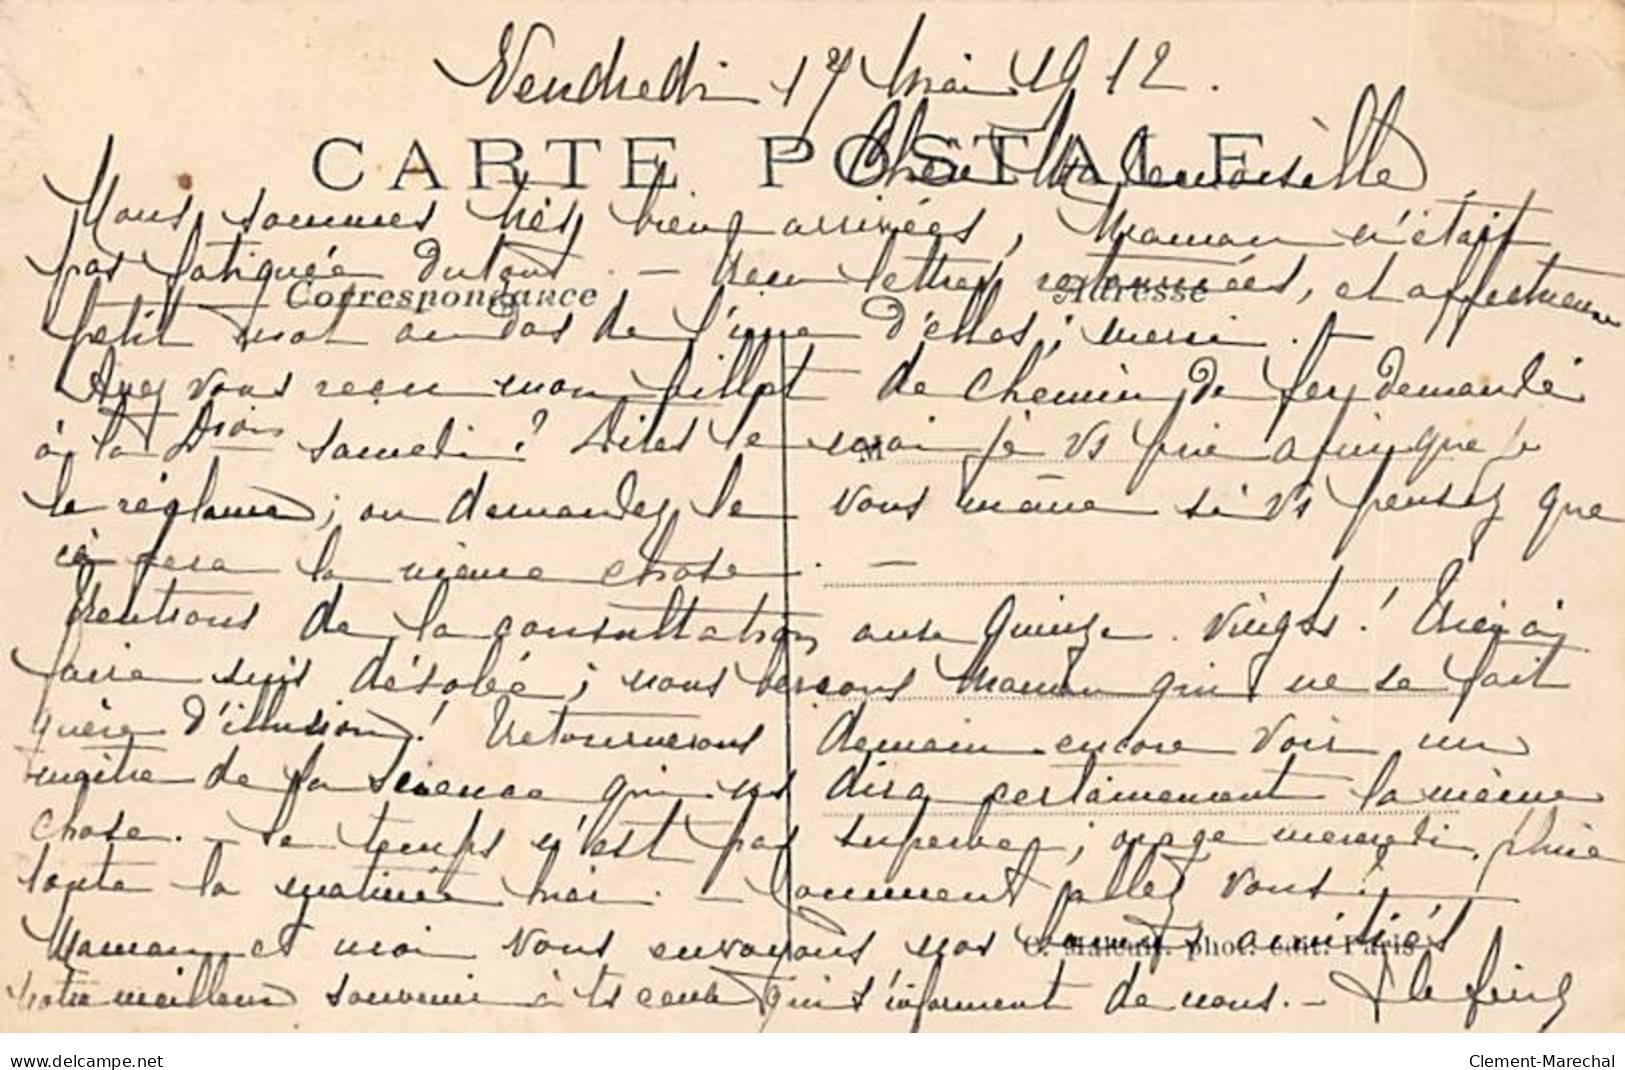 Vendredi 17 Mai 1912.
CARTE POSTALE
Chère Mademoiselle
Nous sommes très bien arrivées, Maman n'était
pas fatiguée du tout. - Reçu lettres retournées, et affectueux
Correspondance
Adresse
petit mot au dos de l'une d'elles; merci. -
Avez vous reçu mon billet de chemin de fer demandé
à la Dion samedi? Dites le moi je vs prie afin que je
M
le réclame; ou demandez le vous même si vs pensez que
ce sera la même chose. -
Rentrons de la consultation aux Quinze. Vingts! Rien à
faire suis désolée; nous berçons Maman qui ne se fait
guère d'illusion! Retournerons demain encore voir un
maître de la science qui ns dira certainement la même
chose. - Le temps n'est pas superbe; orage mercredi, pluie
toute la matinée hier. - Comment allez vous?
Maman et moi vous envoyons nos bonnes amitiés
C. Malcuit, phot. édit. Paris
notre meilleur souvenir à ts ceux qui s'informent de nous. -
delcampe.net
Clement-Marechal